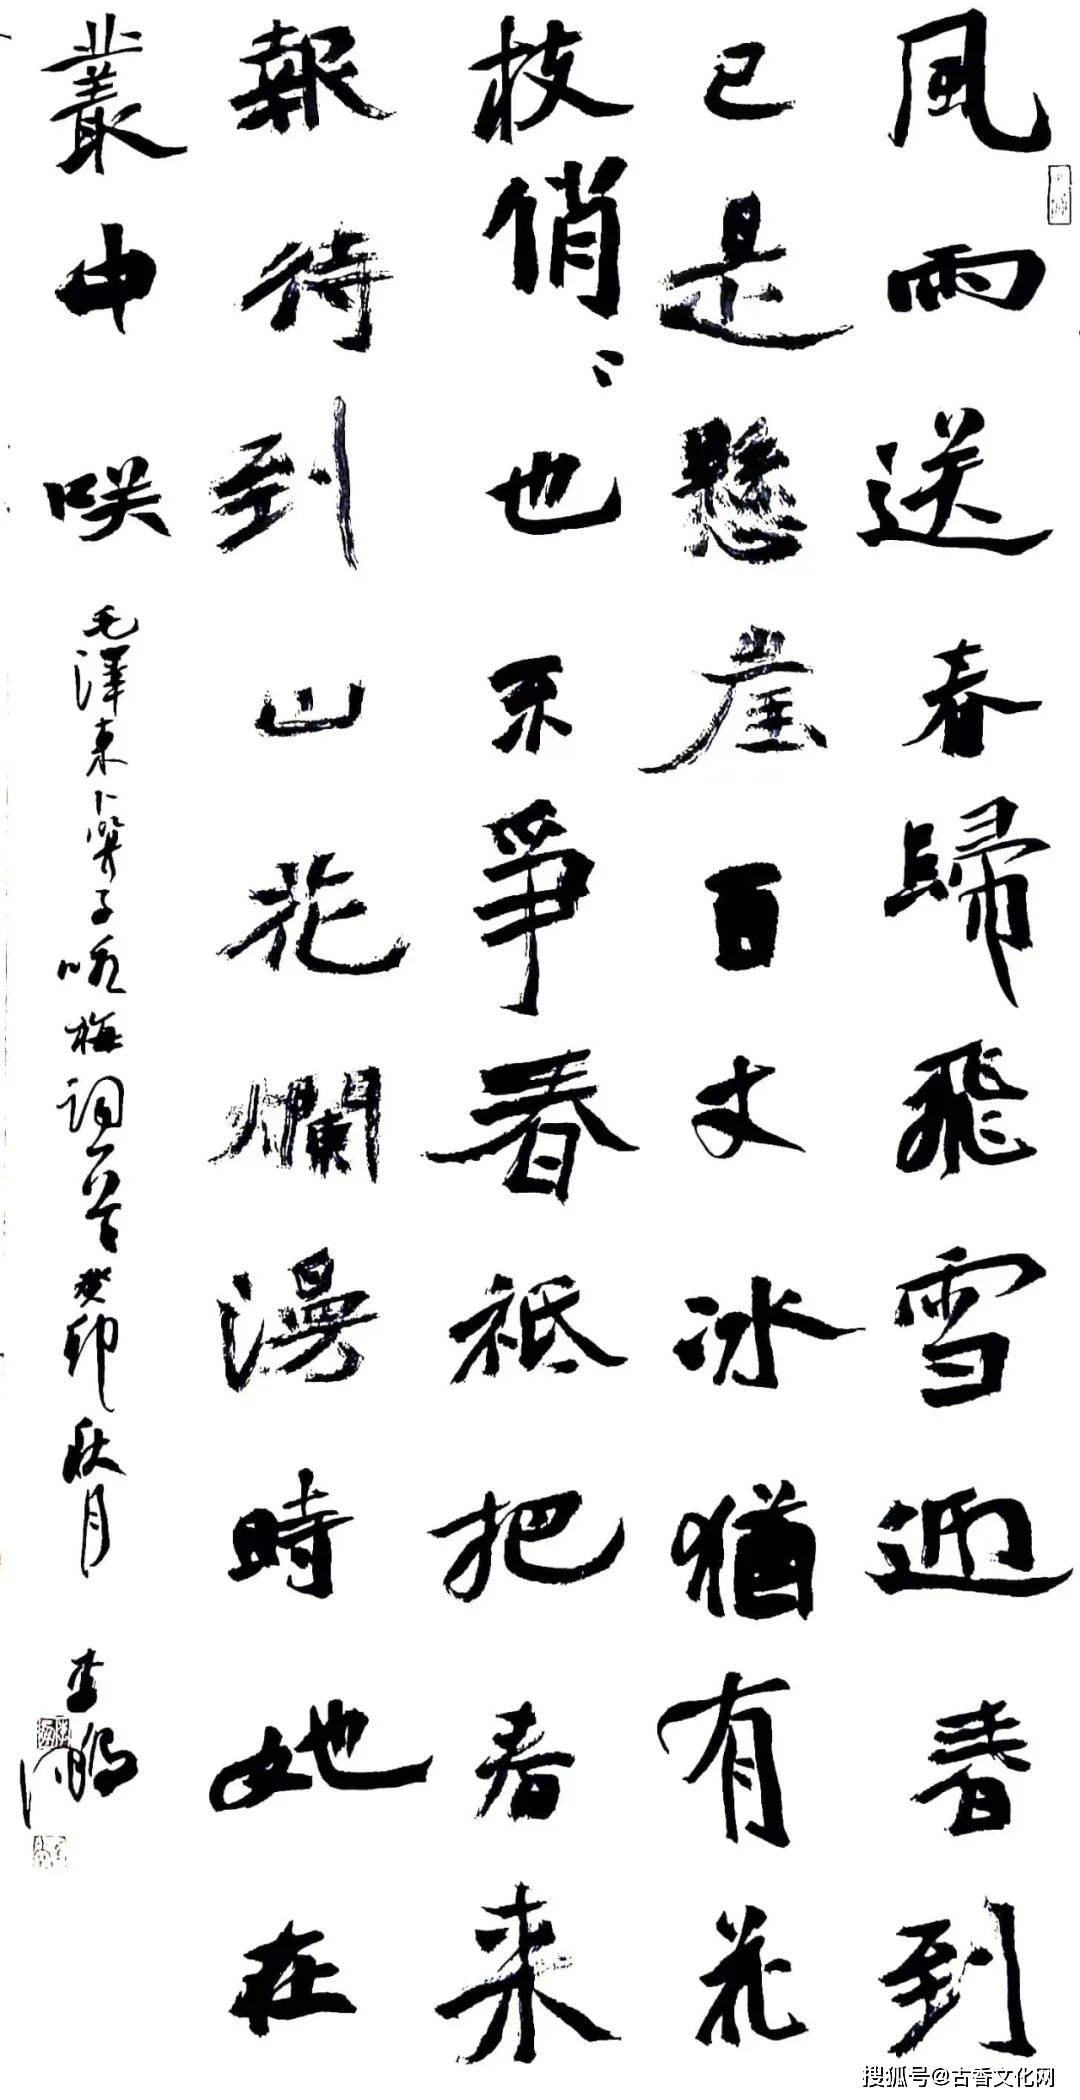 風雨送春歸飛雪迎春到
已是懸崖百丈冰猶有花
枝俏〻也不爭春祗把春來
報待到山花爛漫時她在
叢中咲
毛澤東卜算子咏梅詞一首癸卯秋月
李鵬
搜狐号@古香文化网